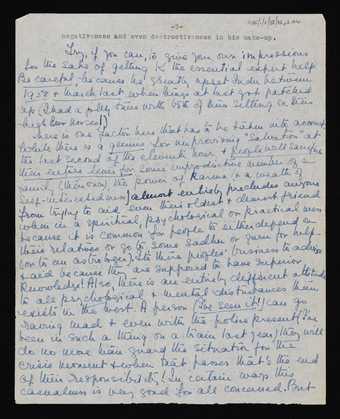 -3-
negativeness and even destructiveness in his make-up.
Try, if you can, to give your own impressions
for the sake of getting K the essential expert help.
Be careful, because he greatly upset Indu between
1958 + March last when things at last got patched
up. (I had a jolly time with both of them sitting on their
high Bear horses!)
There is one factor here that has to be taken into account.
While there is a genius for improvising "salvation" at
the last second of the eleventh hour + people will sacrifice
their entire lives for some unproductive member of a
family (their own) the power of Karma (+ a wealth of
self-interestedness) almost entirely precludes anyone
from trying to aid even their oldest + dearest friend
when in a spiritual, psychological or practical mess
because it is common for people to either depend on
their relatives or go to some Sadhu or Guru for help
(or to an astrologer). It's these peoples' business to advise
+ aid because they are supposed to have superior
Knowledge! Also, there is an entirely different attitude
to all psychological + mental disturbances than
exists in the West. A person (I've seen it!) can go
raving mad + even with the police present (I've
been in such a thing on a train last year) they will
do no more than guard the situation for the
crisis moment + when that passes that's the end
of their responsibility! In certain ways this
casualness is very good for all concerned. But